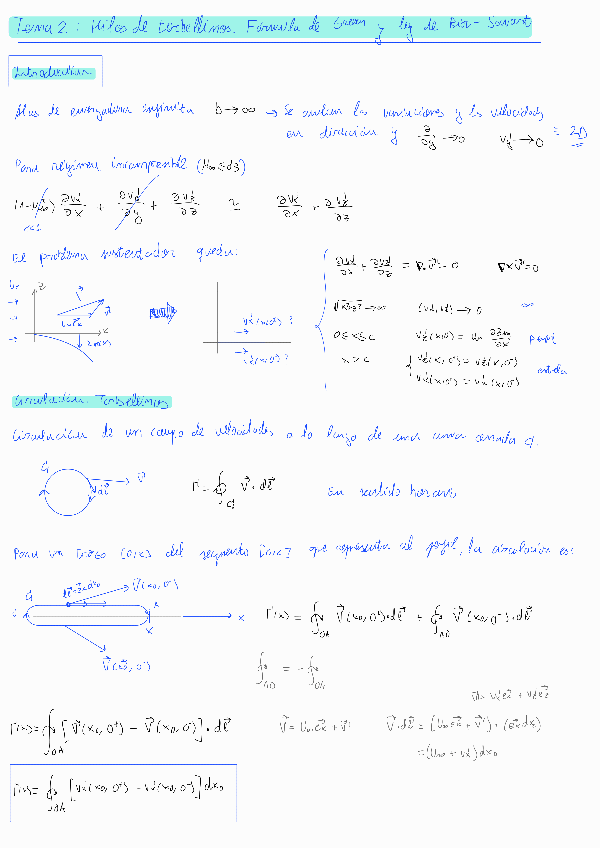 Tema 2: Hilos de torbellinos. Fórmula de Green y ley de Biot-Savart
Introducción
Alas de envergadura infinita b→∞ → Se anulan las variaciones y las velocidades
en dirección y ∂/∂y →0 v'y →0 ≡ 2D
Para régimen incompresible
∂v'x/∂x + ∂v'z/∂z
El problema sustentador queda:
∂v'x/∂x + ∂v'z/∂z = ∇·v' = 0 ∇×v'=0
√x²+z² →∞ (v'x, v'z) → 0 ∞
0≤x≤c perfil
x>c estela
Circulación. Torbellinos
Circulación de un campo de velocidades a lo largo de una curva cerrada
Γ = ∮ V·dl en sentido horario
Para un trozo [0,x] del segmento [0,c] que representa al perfil, la circulación es:
V(x₀, 0⁺)
Γ(x) = ∮OA V(x₀,0⁺)·dl + ∮AO V(x₀,0⁻)·dl
V(x₀, 0⁻)
∮AO = -∮OA
Γ(x) = ∮OA [V(x₀,0⁺) - V(x₀,0⁻)]·dl
V = U∞ex + v' V·dl = (U∞ex + v')·(ex dx)
= (U∞ + v'x) dx₀
Γ(x) = ∮OA [v'x(x₀,0⁺) - v'x(x₀,0⁻)] dx₀